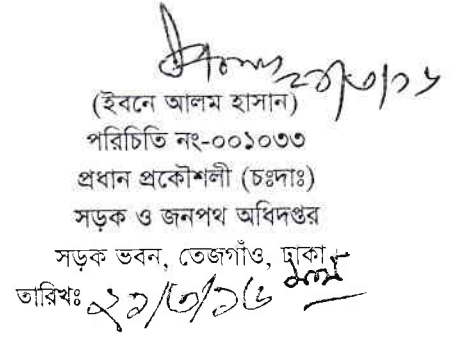 ২৯/৩/১৬
(ইবনে আলম হাসান)
পরিচিতি নং-০০১০৩৩
প্রধান প্রকৌশলী (চঃদাঃ)
সড়ক ও জনপথ অধিদপ্তর
সড়ক ভবন, তেজগাঁও, ঢাকা
তারিখঃ ২৯/৩/১৬